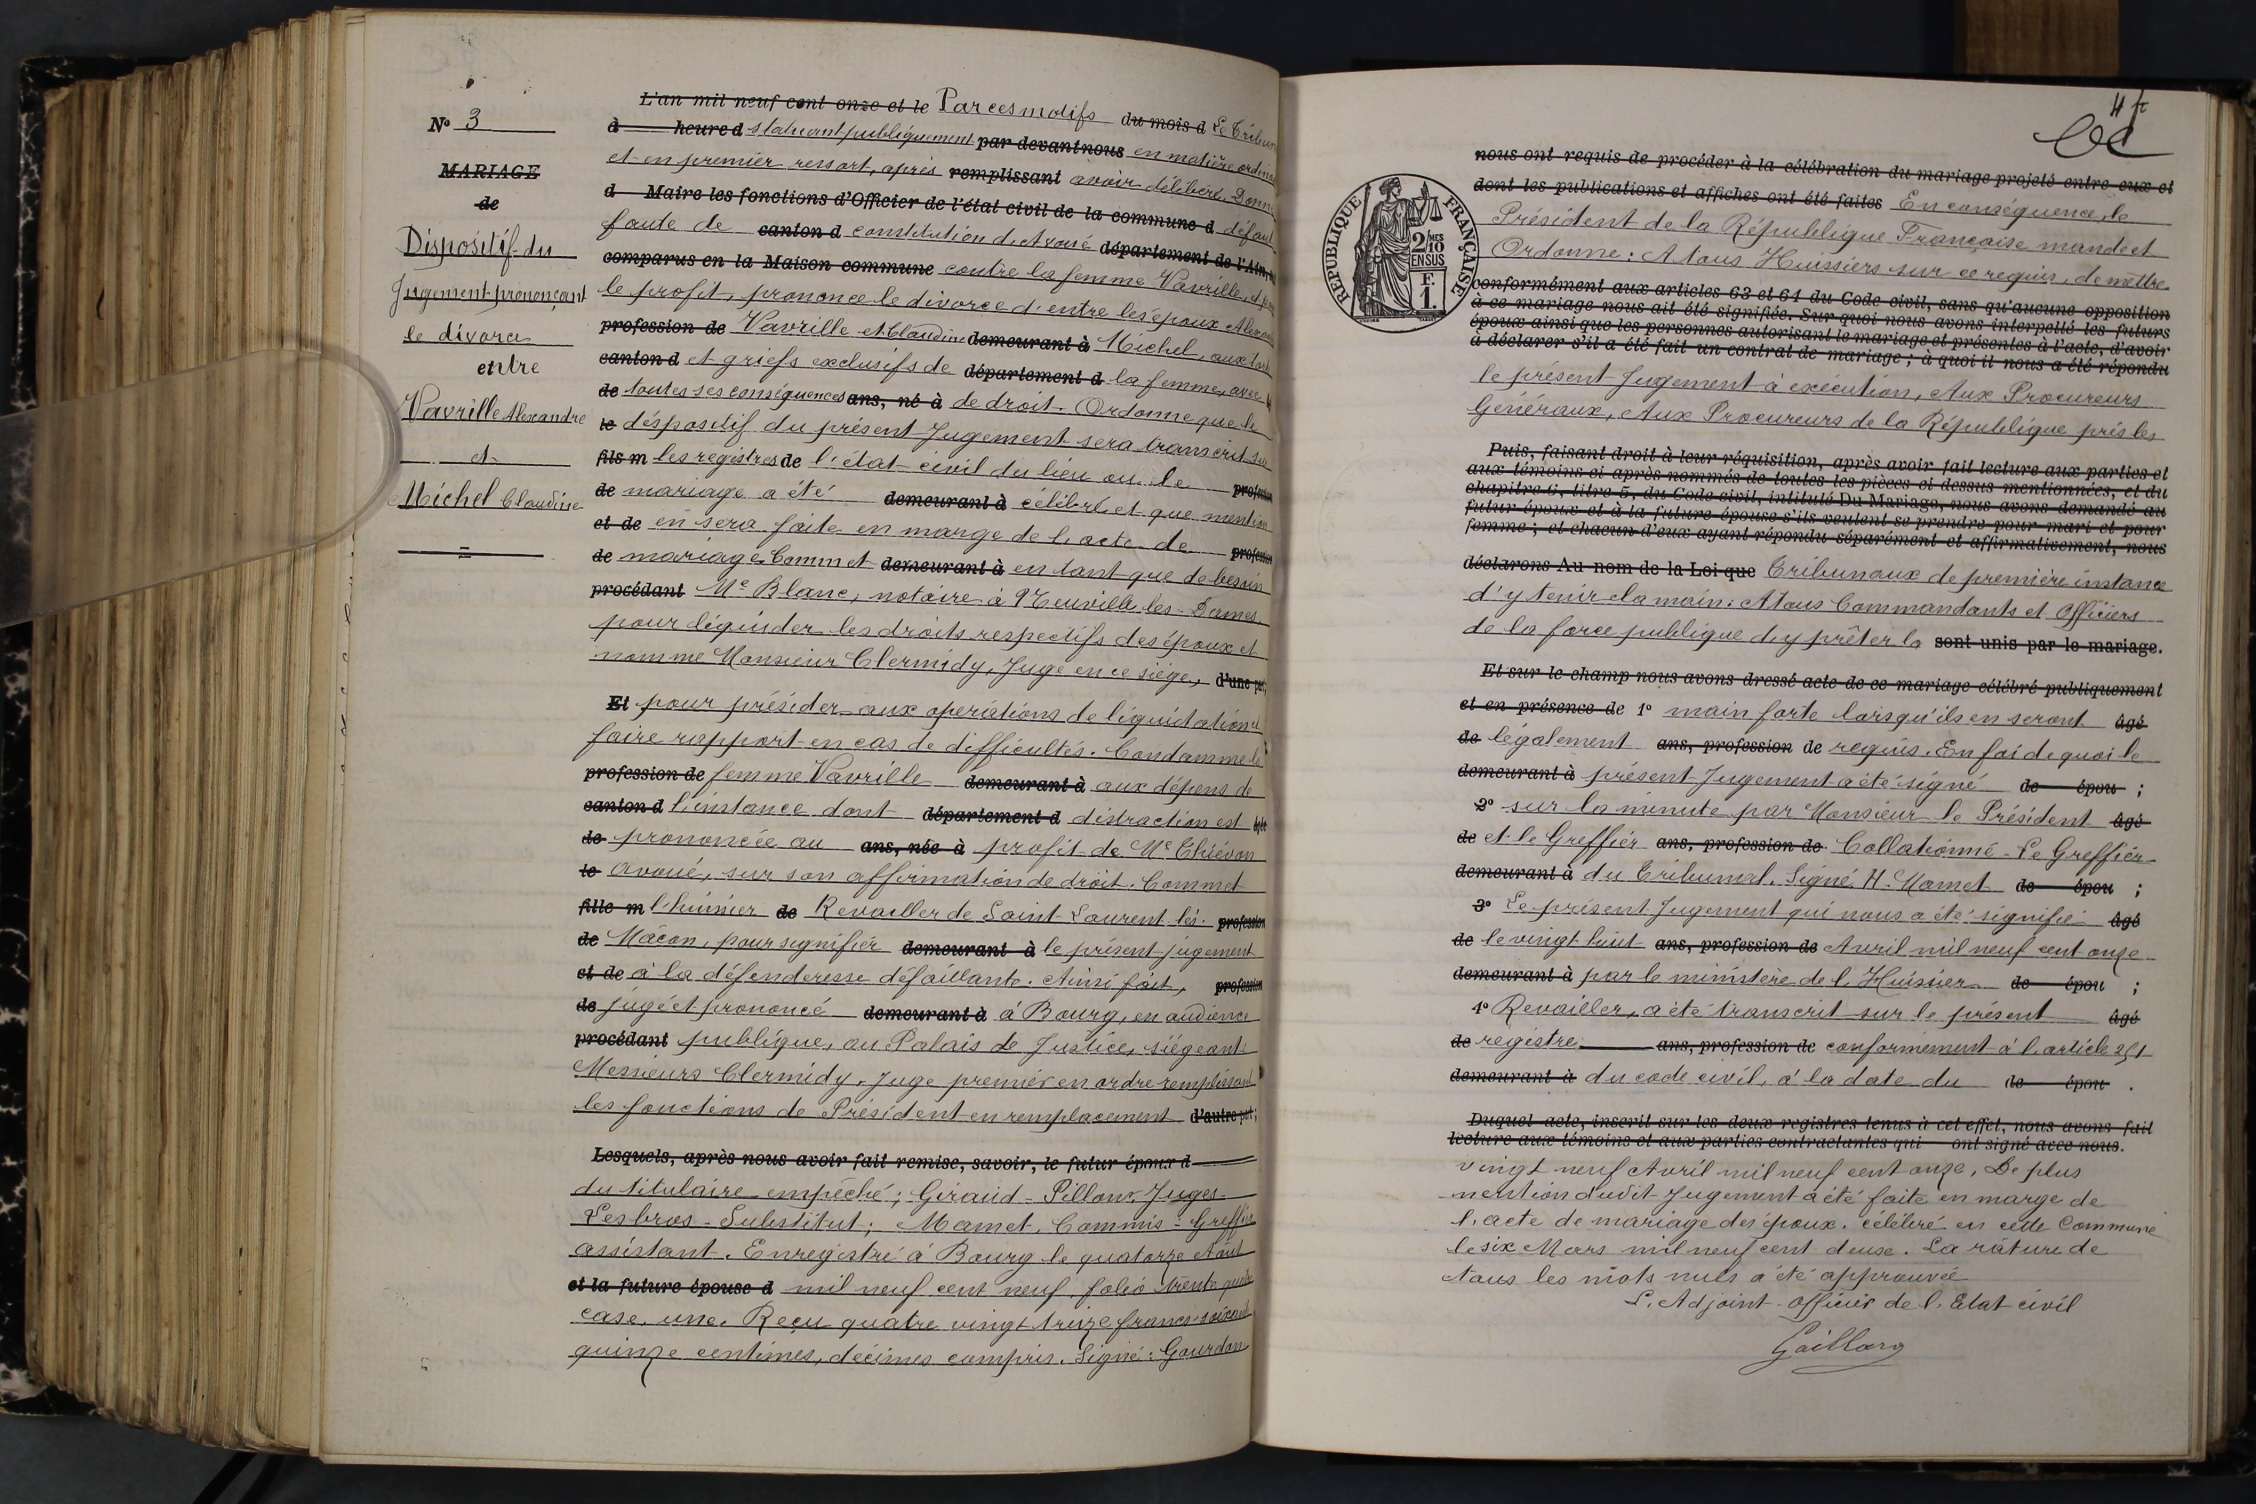 N° 3
MARIAGE
de
Dispositif du
Jugement prononçant
le divorce
entre
Vavrille Alexandre
et
Michel Claudine
L'an mil neuf cent onze et le Par ces motifs du mois d Le Tribun
à heure d statuant publiquement par devant nous en matière ordin
et en premier ressort, après remplissant avoir délibéré. Donne
d Maire les fonctions d'Officier de l'état civil de la commune d défaut
faute de canton d constitution d'Avoué département de l'Ain,
comparus en la Maison commune contre la femme Vavrille, et pour
le profit, prononce le divorce d'entre les époux Alexan
profession de Vavrille et Claudine demeurant à Michel, aux torts
canton d et griefs exclusifs de département d la femme, avec
de toutes ses conséquences ans, né à de droit. Ordonne que le
le dispositif du présent Jugement sera transcrit sur
fils m les registres de l'état civil du lieu où le profession
de mariage a été demeurant à célébré et que mention
et de en sera faite en marge de l'acte de profession
de mariage. Commet demeurant à en tant que de besoin
procédant Me Blanc, notaire à Neuville les Dames
pour liquider les droits respectifs des époux et
nomme Monsieur Clermidy, Juge en ce siège, d'une part;
Et pour présider aux opérations de liquidation et
faire rapport en cas de difficultés. Condamne la
profession de femme Vavrille demeurant à aux dépens de
canton d l'instance dont département d distraction est
de prononcée au ans, née à profit de Me Chiévon
le avoué, sur son affirmation de droit. Commet
fille m l'huissier de Revailler de Saint Laurent lès profession
de Mâcon, pour signifier demeurant à le présent jugement
et de à la défenderesse défaillante. Ainsi fait, profession
de jugé et prononcé demeurant à à Bourg, en audience
procédant publique, au Palais de Justice, siégeant
Messieurs Clermidy, Juge premier en ordre remplissant
les fonctions de Président en remplacement d'autre part;
Lesquels, après nous avoir fait remise, savoir, le futur époux d
du titulaire empêché; Giraud - Pilloux Juges
Lesbros - Substitut; Mamet, Commis - Greffier
assistant. Enregistré à Bourg le quatorze Août
et la future épouse d mil neuf cent neuf, folio trente quatre
case une. Reçu quatre vingt treize francs soixante
quinze centimes, décimes compris. Signé: Gourdon
4
nous ont requis de procéder à la célébration du mariage projeté entre eux et
dont les publications et affiches ont été faites En conséquence, le
Président de la République Française mande et
Ordonne: A tous Huissiers sur ce requis, de mettre
conformément aux articles 63 et 64 du Code civil, sans qu'aucune opposition
à ce mariage nous ait été signifiée. Sur quoi nous avons interpellé les futurs
époux ainsi que les personnes autorisant le mariage et présentes à l'acte, d'avoir
à déclarer s'il a été fait un contrat de mariage; à quoi il nous a été répondu
le présent Jugement à exécution, Aux Procureurs
Généraux, Aux Procureurs de la République près les
Puis, faisant droit à leur réquisition, après avoir fait lecture aux parties et
aux témoins ci après nommés de toutes les pièces ci dessus mentionnées, et du
chapitre 6, titre 5, du Code civil, intitulé Du Mariage, nous avons demandé au
futur époux et à la future épouse s'ils veulent se prendre pour mari et pour
femme; et chacun d'eux ayant répondu séparément et affirmativement, nous
déclarons Au nom de la Loi que Tribunaux de première instance
d'y tenir la main: A tous Commandants et Officiers
de la force publique d'y prêter la sont unis par le mariage.
Et sur le champ nous avons dressé acte de ce mariage célébré publiquement
et en présence de 1° main forte lorsqu'ils en seront âgé
de légalement ans, profession de requis. En foi de quoi le
demeurant à présent Jugement a été signé de épou ;
2° sur la minute par Monsieur le Président âgé
de et le Greffier ans, profession de Collationné - Le Greffier
demeurant à du Tribunal. Signé H. Mamet de épou ;
3° Le présent Jugement qui nous a été signifié âgé
de le vingt huit ans, profession de Avril mil neuf cent onze
demeurant à par le ministère de l'Huissier de épou ;
4° Revailler, a été transcrit sur le présent âgé
de registre ans, profession de conformément à l'article 251
demeurant à du code civil, à la date du de épou .
Duquel acte, inscrit sur les deux registres tenus à cet effet, nous avons fait
lecture aux témoins et aux parties contractantes qui ont signé avec nous.
vingt neuf Avril mil neuf cent onze. De plus
mention dudit Jugement a été faite en marge de
l'acte de mariage des époux, célébré en cette Commune
le six Mars mil neuf cent deux. La râture de
tous les mots nuls a été approuvée
L'Adjoint Officier de l'Etat civil
Gaillard
RÉPUBLIQUE FRANÇAISE
2/10 MES
EN SUS
F.
1.